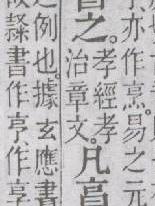 亦作烹。易之元
之。孝經孝
治章文。凡亯
之例也。據玄應書
隸書作亨作享